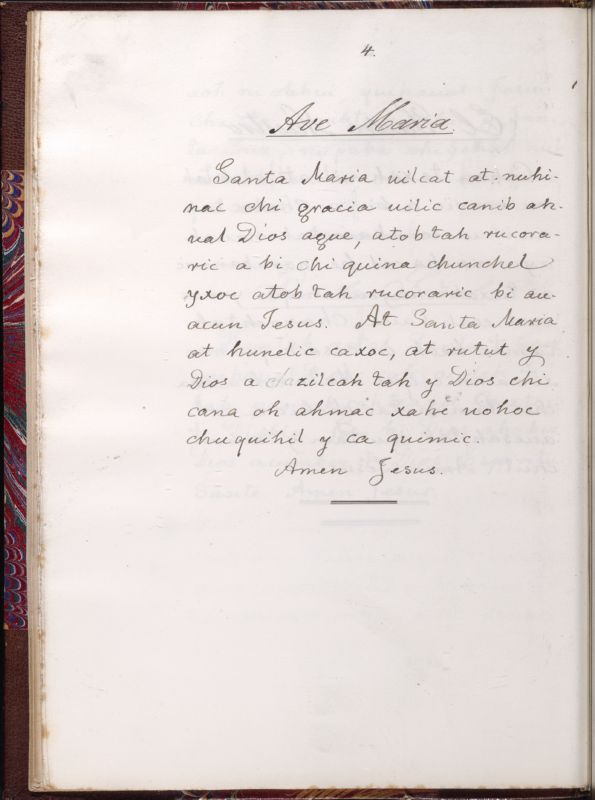 4.
Ave Maria.
Santa Maria uilcat at nuhi-
nac chi gracia uilic canib ah-
ual Dios aque, atob tah rucora-
ric a bi chi quina chunchel
yxoc atob tah rucoraric bi au-
acun Jesus. At Santa Maria
at hunelic caxoc, at rutut y
Dios a chazilcah tah y Dios chi
cana oh ahmac xahe uohoc
chuquihil y ca quimic.
Amen Jesus.